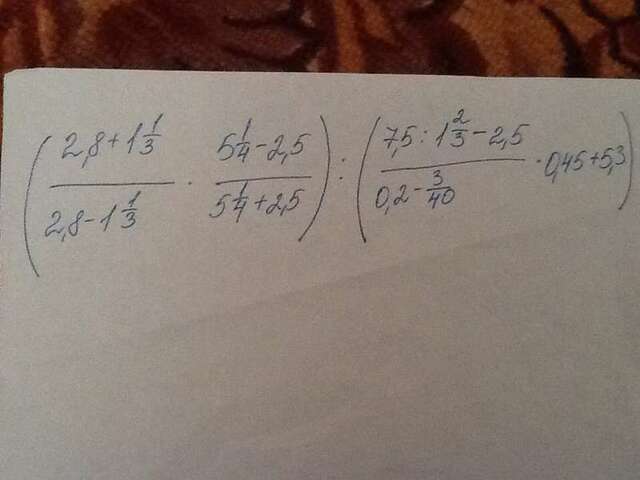 ( (2,8 + 1 1/3) / (2,8 - 1 1/3) · (5 1/4 - 2,5) / (5 1/4 + 2,5) ) : ( (7,5 : 1 2/3 - 2,5) / (0,2 - 3/40) · 0,45 + 5,3 )